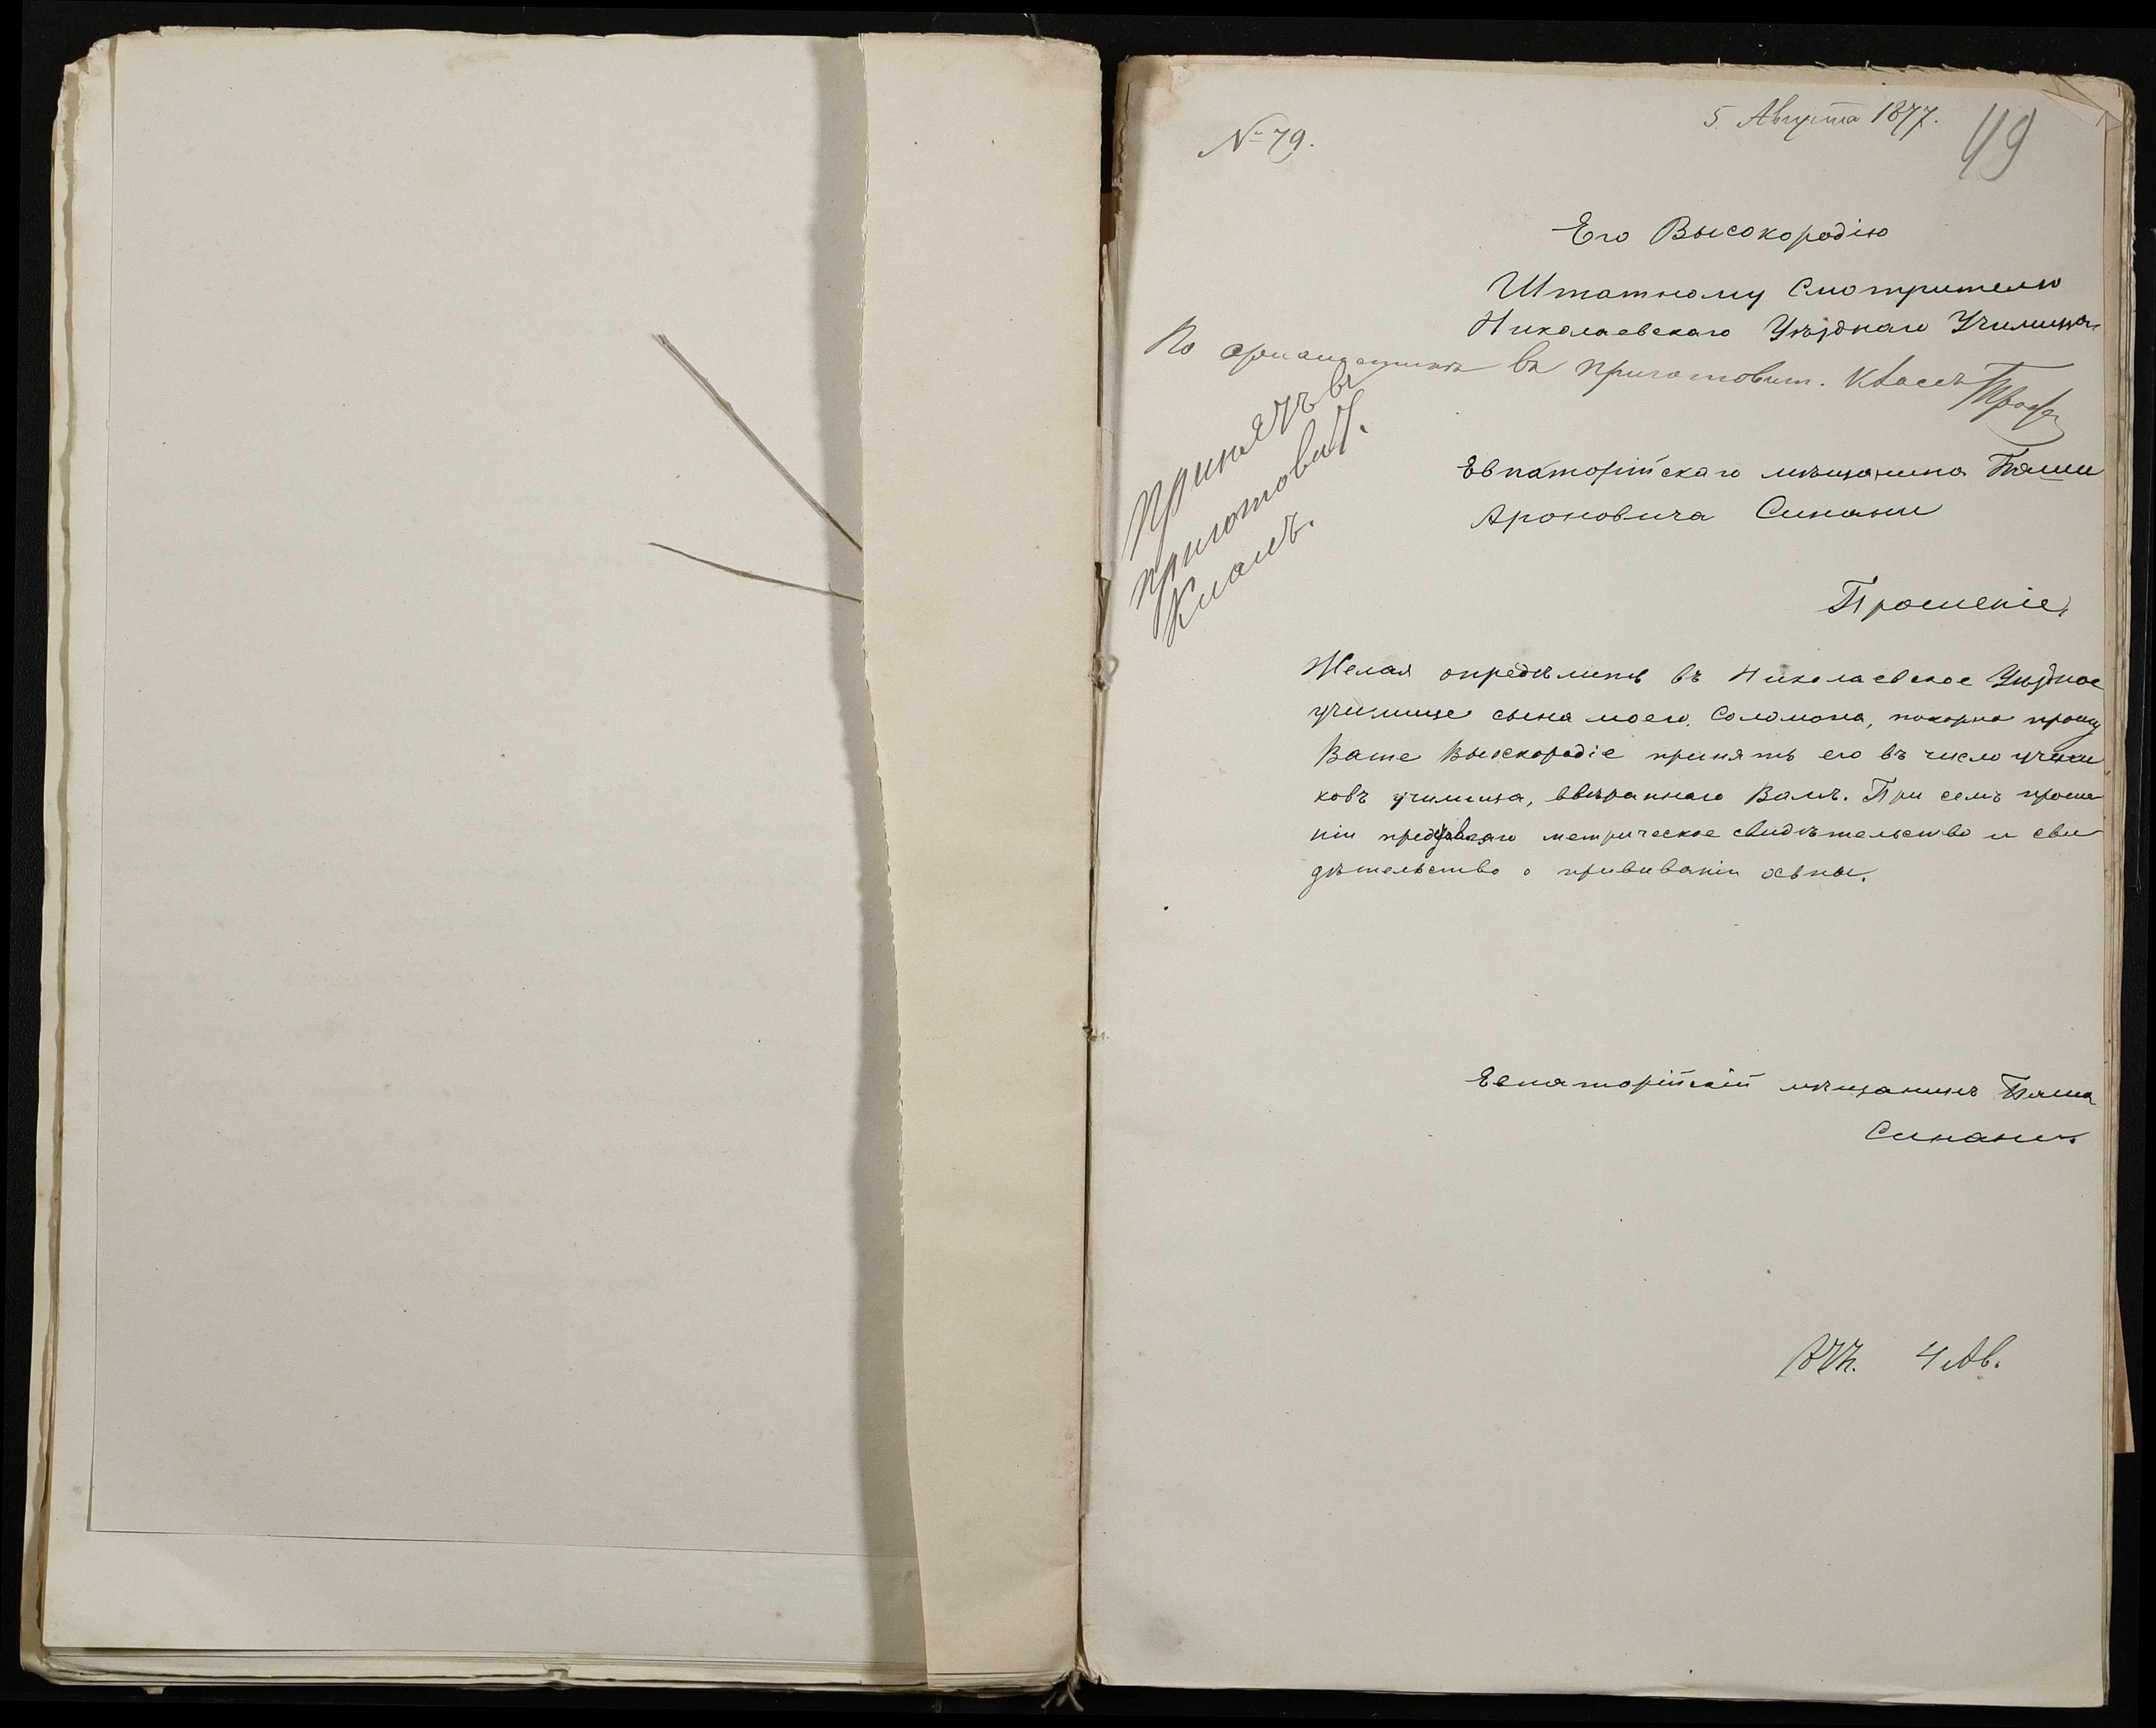 № 79.
5 Августа 1877.
49
Его Высокородію
Штатному Смотрителю
Николаевскаго Уѣзднаго Училища
По въ приготовит. классъ
Принятъ въ
приготовит.
Классъ.
Евпаторійскаго мѣщанина Баши
Ароновича Синани
Прошеніе,
Желая опредѣлить въ Николаевское Уѣздное
училище сына моего, Соломона, покорно прошу
Ваше Высокородіе принять его въ число учени
ковъ училища, ввѣреннаго Вамъ. При семъ проше
ніи метрическое свидѣтельство и сви
дѣтельство о прививаніи оспы.
Евпаторійскій мѣщанинъ Баша
Синани
4 Ав.